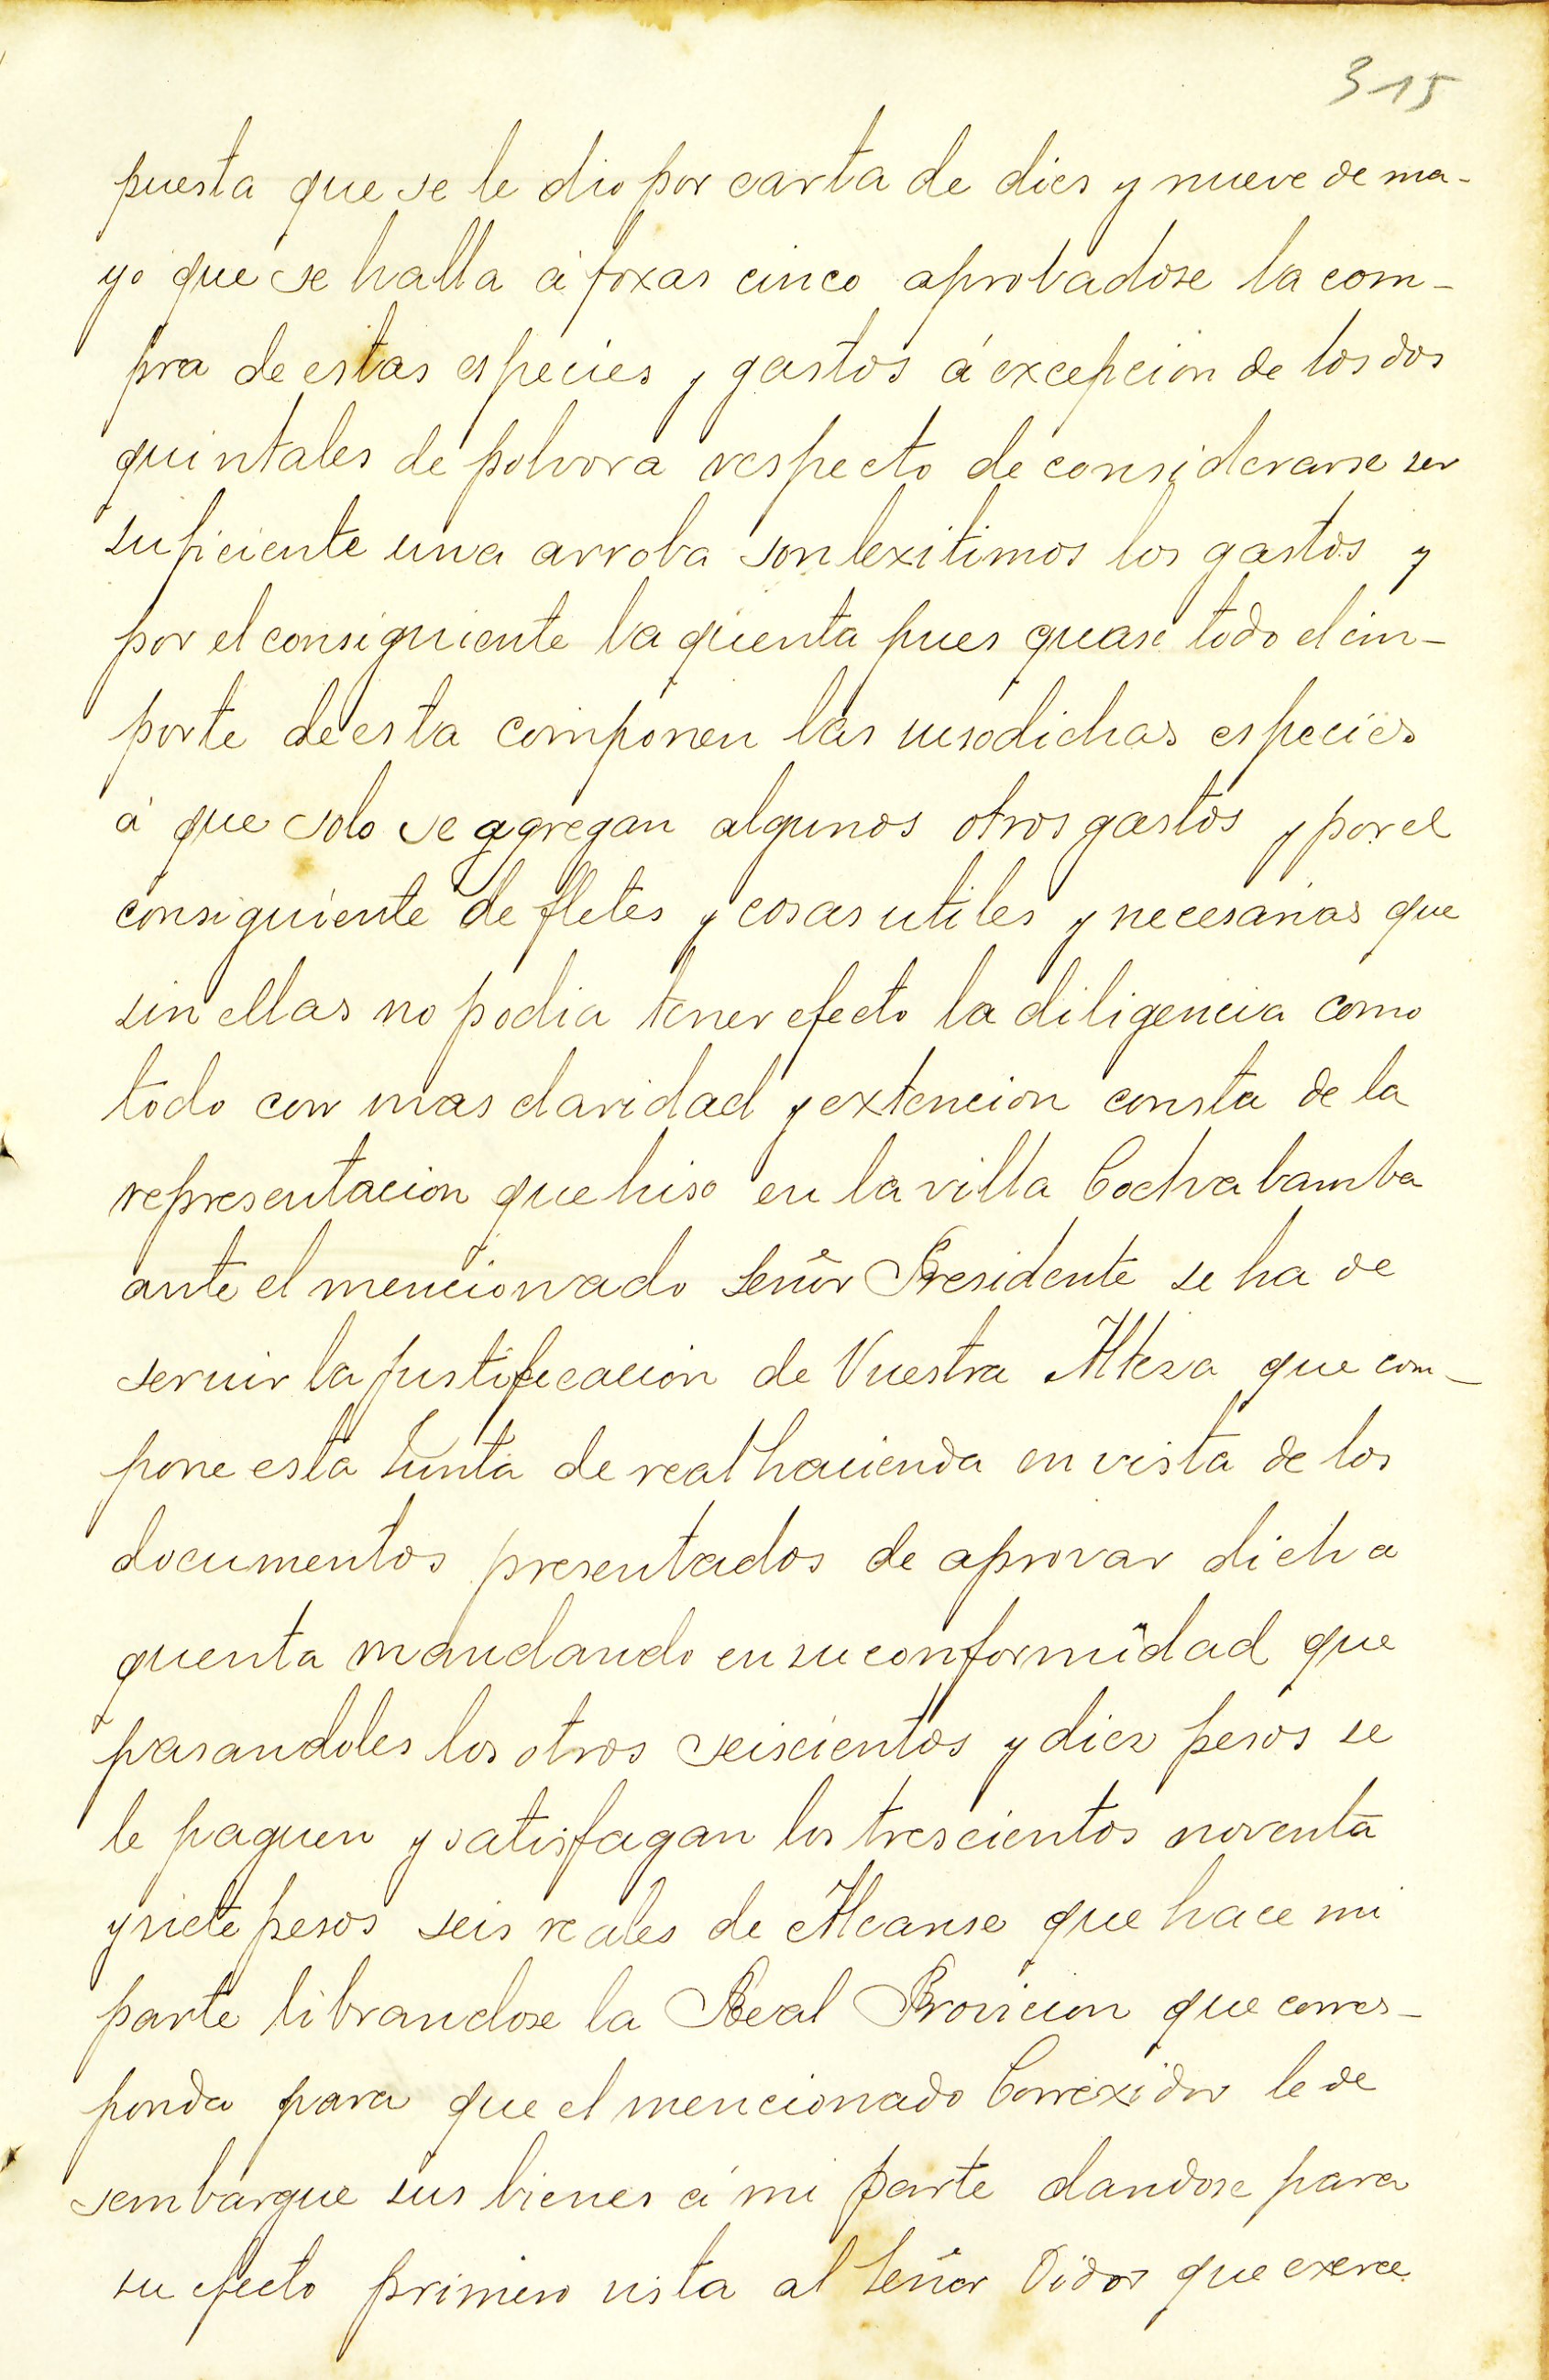 315
puesta que se le dio por carta de dies y nueve de ma-
yo que se halla á foxas cinco aprobadose la com-
pra de estas especies y gastos á excepcion de los dos
quintales de polvora respecto de considerarse ser
suficiente una arroba son lexitimos los gastos y
por el consiguiente la quenta pues quasi todo el im-
porte de esta componen las susodichas especies
á que solo se agregan algunos otros gastos y por el
consiguiente de fletes y cosas utiles y necesarias que
sin ellas no podia tener efecto la diligencia como
todo con mas claridad y extencion consta de la
representacion que hiso en la villa Cochabamba
ante el mencionado Señor Presidente se ha de
servir la justificacion de Vuestra Altesa que com-
pone esta Junta de real hacienda en vista de los
documentos presentados de aprovar dicha
quenta mandando en su conformidad que
pasandoles los otros seiscientos y dies pesos se
le paguen y satisfagan los trescientos noventa
y siete pesos seis reales de Alcanse que hace mi
parte librandose la Real Provicion que corres-
ponda para que el mencionado Correxidor le de
sembargue sus bienes á mi parte dandose para
su efecto primero vista al Señor Oidor que exerce